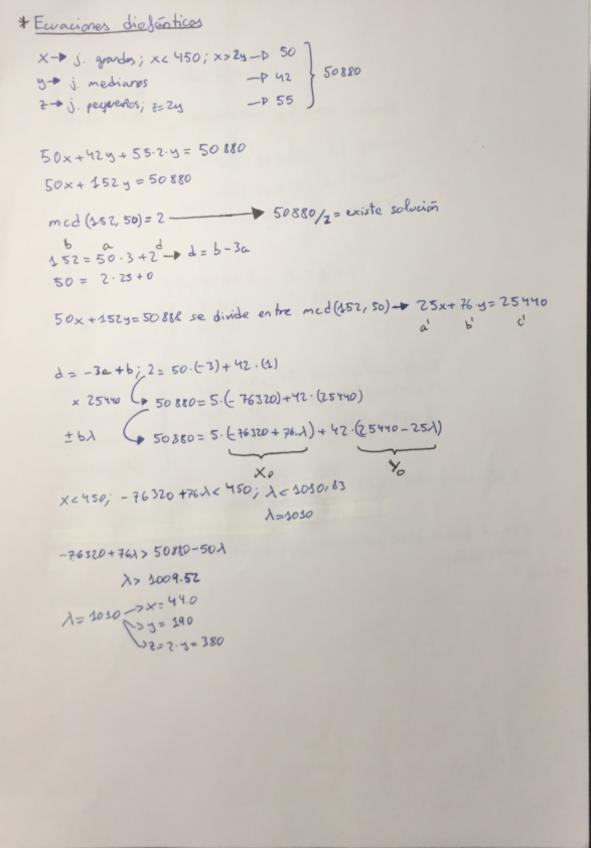 * Ecuaciones diofánticas
x → j. grandes; x < 450; x > 2y → 50
y → j. medianos → 42 } 50880
z → j. pequeños; z = 2y → 55
50x + 42y + 55·2·y = 50880
50x + 152y = 50880
mcd (152, 50) = 2 → 50880/2 = existe solución
b a d
152 = 50·3 + 2 → d = b - 3a
50 = 2·25 + 0
50x + 152y = 50888 se divide entre mcd (152, 50) → 25x + 76·y = 25440
a' b' c'
d = -3a + b; 2 = 50·(-3) + 42·(1)
× 25440 50880 = 5·(-76320) + 42·(25440)
± bλ 50880 = 5·(-76320 + 76·λ) + 42·(25440 - 25λ)
X₀ Y₀
x < 450; -76320 + 76λ < 450; λ < 1010,13
λ = 1010
-76320 + 76λ > 50880 - 50λ
λ > 1009.52
λ = 1010 → x = 440
→ y = 190
→ z = 2·y = 380